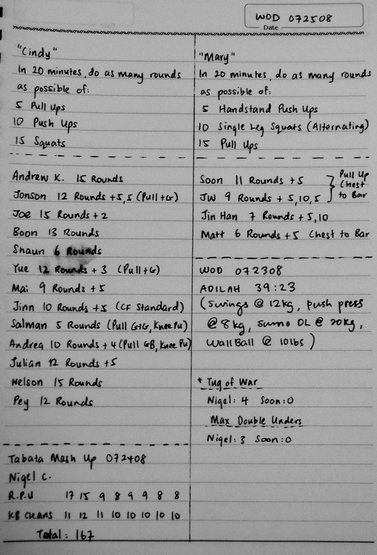 WOD 072508
Date
"Cindy"
In 20 minutes, do as many rounds
as possible of:
5 Pull Ups
10 Push Ups
15 Squats
Andrew K. 15 Rounds
Jonson 12 Rounds +5,5 (Pull+G)
Joe 15 Rounds +2
Boon 13 Rounds
Shaun 6 Rounds
Yue 12 Rounds + 3 (Pull+G)
Mai 9 Rounds +5
Jinn 10 Rounds +5 (CF Standard)
Salman 5 Rounds (Pull G+G, Knee Pu)
Andrea 10 Rounds +4 (Pull GB, Knee Pu)
Julian 12 Rounds +5
Nelson 15 Rounds
Pey 12 Rounds
Tabata Mash Up 072408
Nigel C.
R.P.U 17 15 9 8 9 9 8 8
KB Cleans 11 12 11 10 10 10 10 10
Total: 167
"Mary"
In 20 minutes, do as many rounds
as possible of:
5 Handstand Push Ups
10 Single Leg Squats (Alternating)
15 Pull Ups
Soon 11 Rounds +5
JW 9 Rounds +5,10,5
Pull Up
Chest
to Bar
Jin Han 7 Rounds +5,10
Matt 6 Rounds +5 Chest to Bar
WOD 072308
ADILAH 39:23
(Swings @ 12kg, push press
@ 8kg, sumo DL @ 20kg,
Wall Ball @ 10lbs)
* Tug of War
Nigel: 4 Soon: 0
Max Double Unders
Nigel: 3 Soon: 0